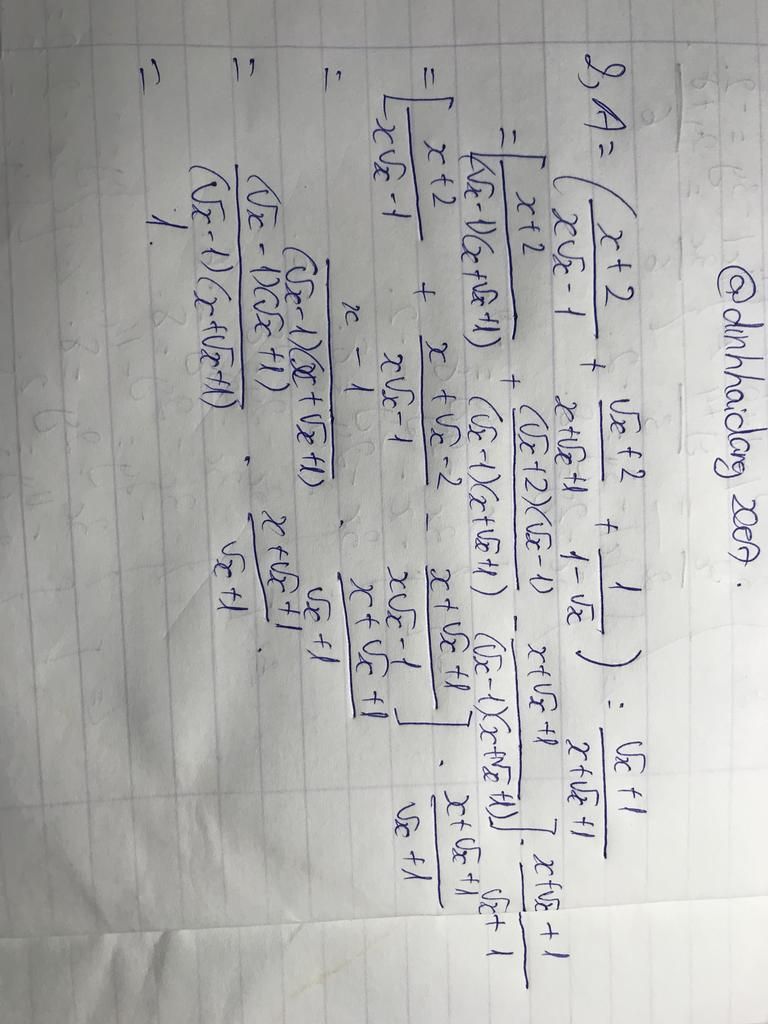 @dinhhaidang
2, A = (x+2/x√x-1 + √x+2/x+√x+1 + 1/1-√x) : √x+1/x+√x+1
= [x+2/(√x-1)(x+√x+1) + (√x+2)(√x-1)/(√x-1)(x+√x+1) - x+√x+1/(√x-1)(x+√x+1)] . x+√x+1/√x+1
= [x+2/x√x-1 + x+√x-2/x√x-1 - x+√x+1/x√x-1] . x+√x+1/√x+1
= x-1/(√x-1)(x+√x+1) . x+√x+1/√x+1
= (√x-1)(√x+1)/(√x-1)(x+√x+1) . x+√x+1/√x+1
= 1.